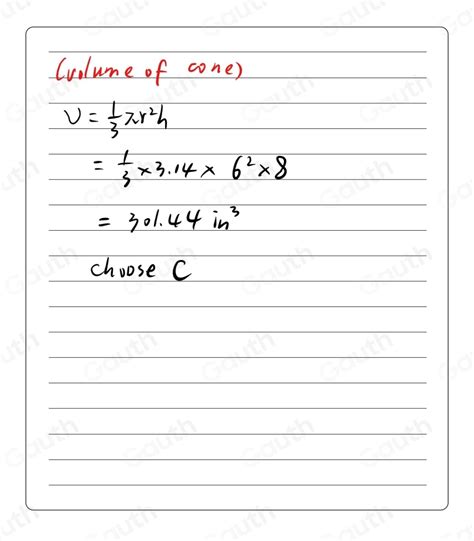 (volume of cone)
V = 1/3 πr²h
= 1/3 × 3.14 × 6² × 8
= 301.44 in³
choose C
Gauth